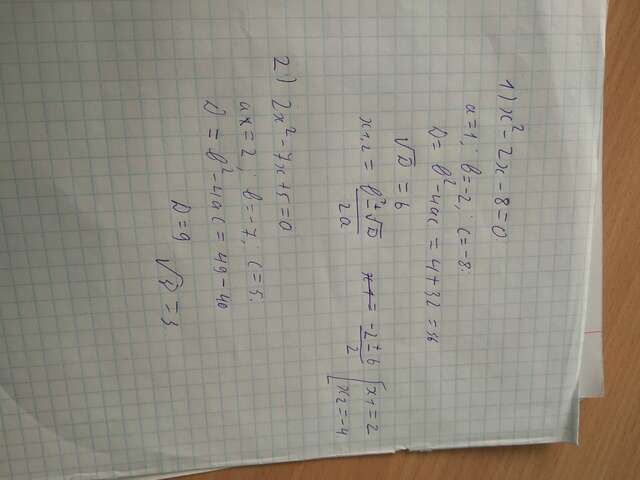 1) x² - 2x - 8 = 0
a = 1; b = -2; c = -8.
D = b² - 4ac = 4 + 32 = 36
√D = 6
x1,2 = b ± √D / 2a x1 = -2 ± 6 / 2 [ x1 = 2 x2 = -4
2) 2x² - 7x + 5 = 0
ax = 2; b = -7; c = 5.
D = b² - 4ac = 49 - 40
D = 9 √D = 3